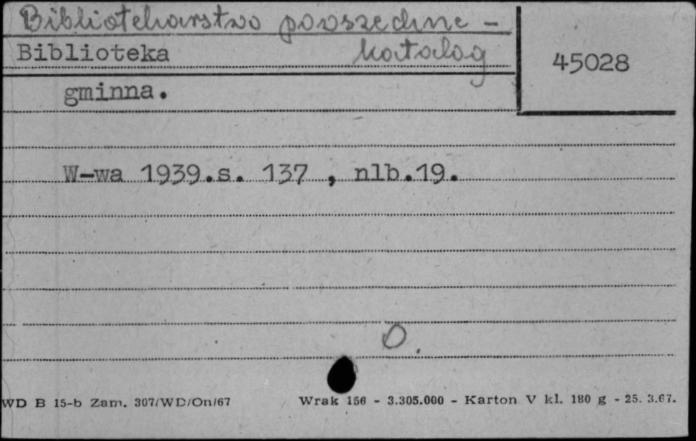 Bibliotekarstwo powszechne -
Biblioteka katalog
45028
gminna.
W-wa 1939.s. 137 , nlb.19.
O.
WD B 15-b Zam. 307/WD/On/67 Wrak 156 - 3.305.000 - Karton V kl. 180 g - 25. 3.67.